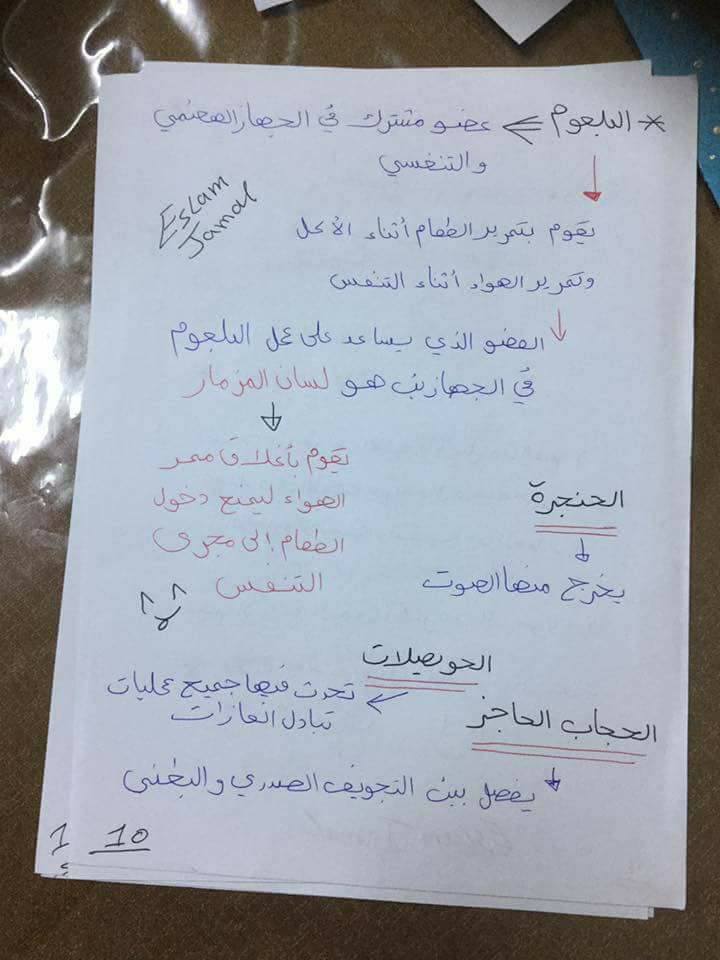 * البلعوم ⇐ عضو مشترك في الجهاز الهضمي
والتنفسي
Eslam
Jamal
يقوم بتمرير الطعام أثناء الأكل
وتمرير الهواء أثناء التنفس
العضو الذي يساعد على عمل البلعوم
في الجهازين هو لسان المزمار
يقوم بأغلاق ممر
الهواء ليمنع دخول
الطعام إلى مجرى
التنفس
الحنجرة
يخرج منها الصوت
الحويصلات
تحدث فيها جميع عمليات
تبادل الغازات
الحجاب الحاجز
يفصل بين التجويف الصدري والبطني
1 10